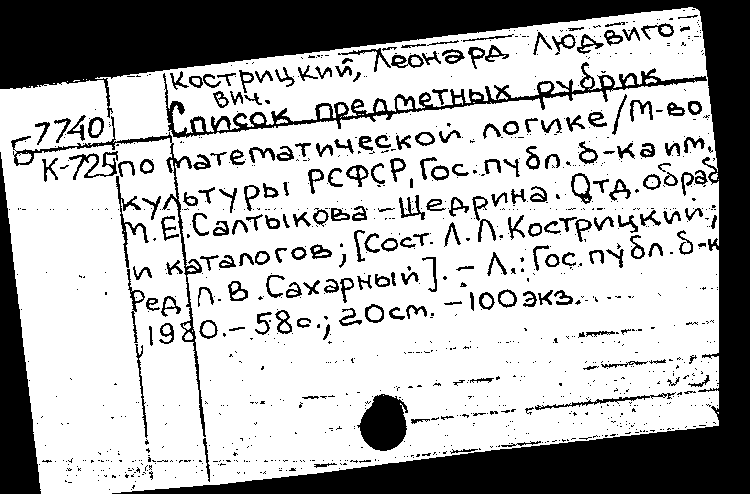 Кострицкий, Леонард Людвиго-
вич.
Список предметных рубрик
Б 7740
К-725
по математической логике/М-во
культуры РСФСР, Гос. публ. б-ка им.
М.Е. Салтыкова-Щедрина. Отд. обраб
и каталогов; [Сост. Л.Л. Кострицкий;
Ред. Л.В. Сахарный]. - Л.: Гос. публ. б-к
1980. - 58с.; 20 см. - 100 экз.